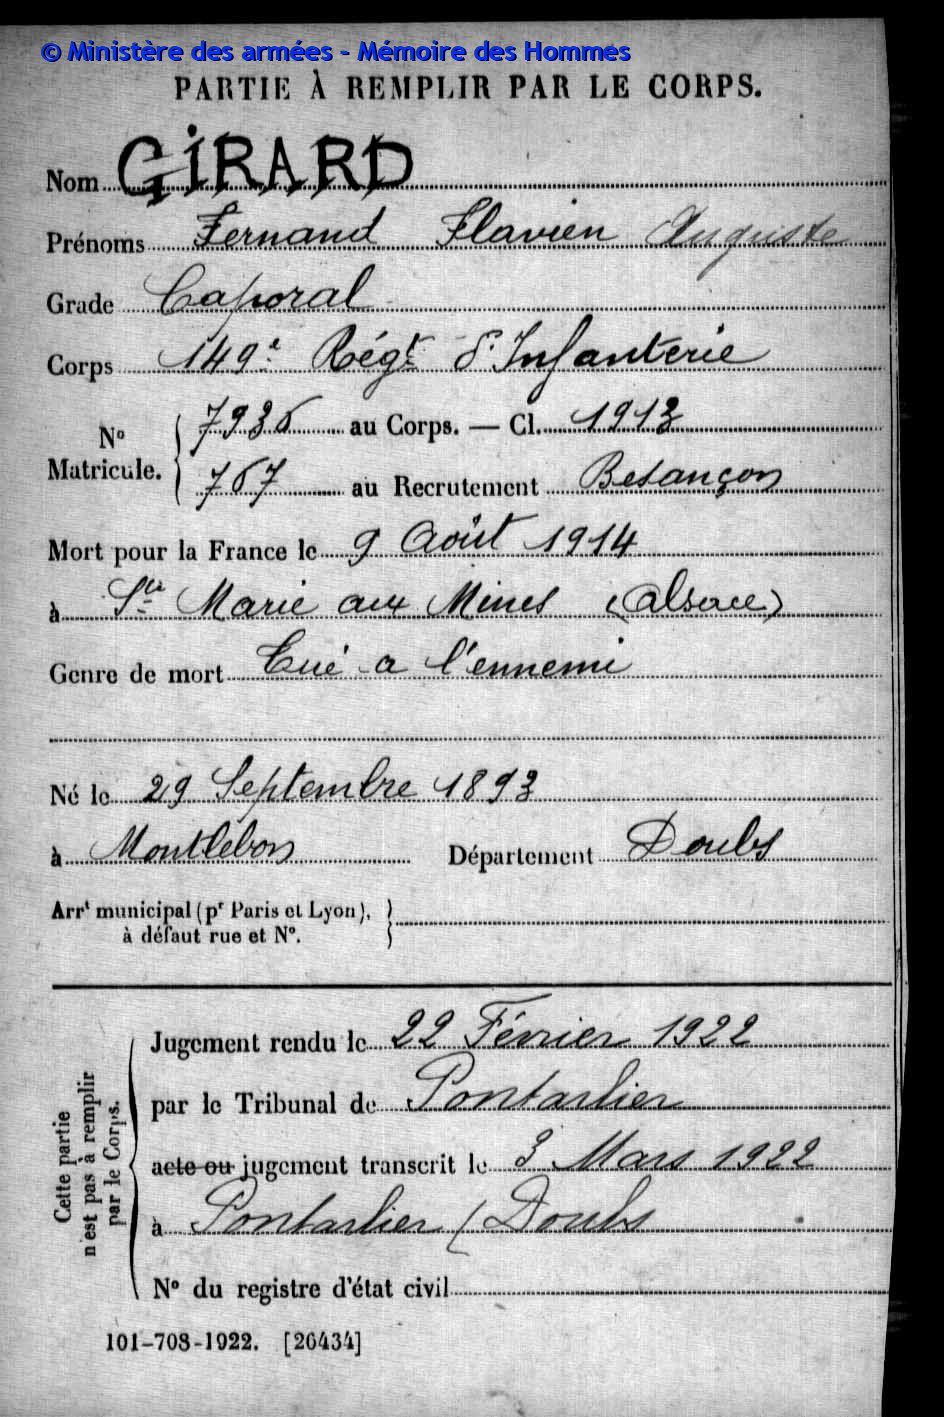 © Ministère des armées - Mémoire des Hommes
PARTIE À REMPLIR PAR LE CORPS.
Nom GIRARD
Prénoms Fernand Flavien Auguste
Grade Caporal
Corps 149e Régt d'Infanterie
No Matricule. { 7936 au Corps. — Cl. 1913
767 au Recrutement Besançon
Mort pour la France le 9 Août 1914
à Ste Marie aux Mines (Alsace)
Genre de mort Tué a l'ennemi
Né le 29 Septembre 1893
à Montlebon Département Doubs
Arrt municipal (pr Paris et Lyon), }
à défaut rue et No.
Cette partie n'est pas à remplir par le Corps.
Jugement rendu le 22 Février 1922
par le Tribunal de Pontarlier
acte ou jugement transcrit le 3 Mars 1922
à Pontarlier (Doubs
No du registre d'état civil
101-708-1922. [26434]